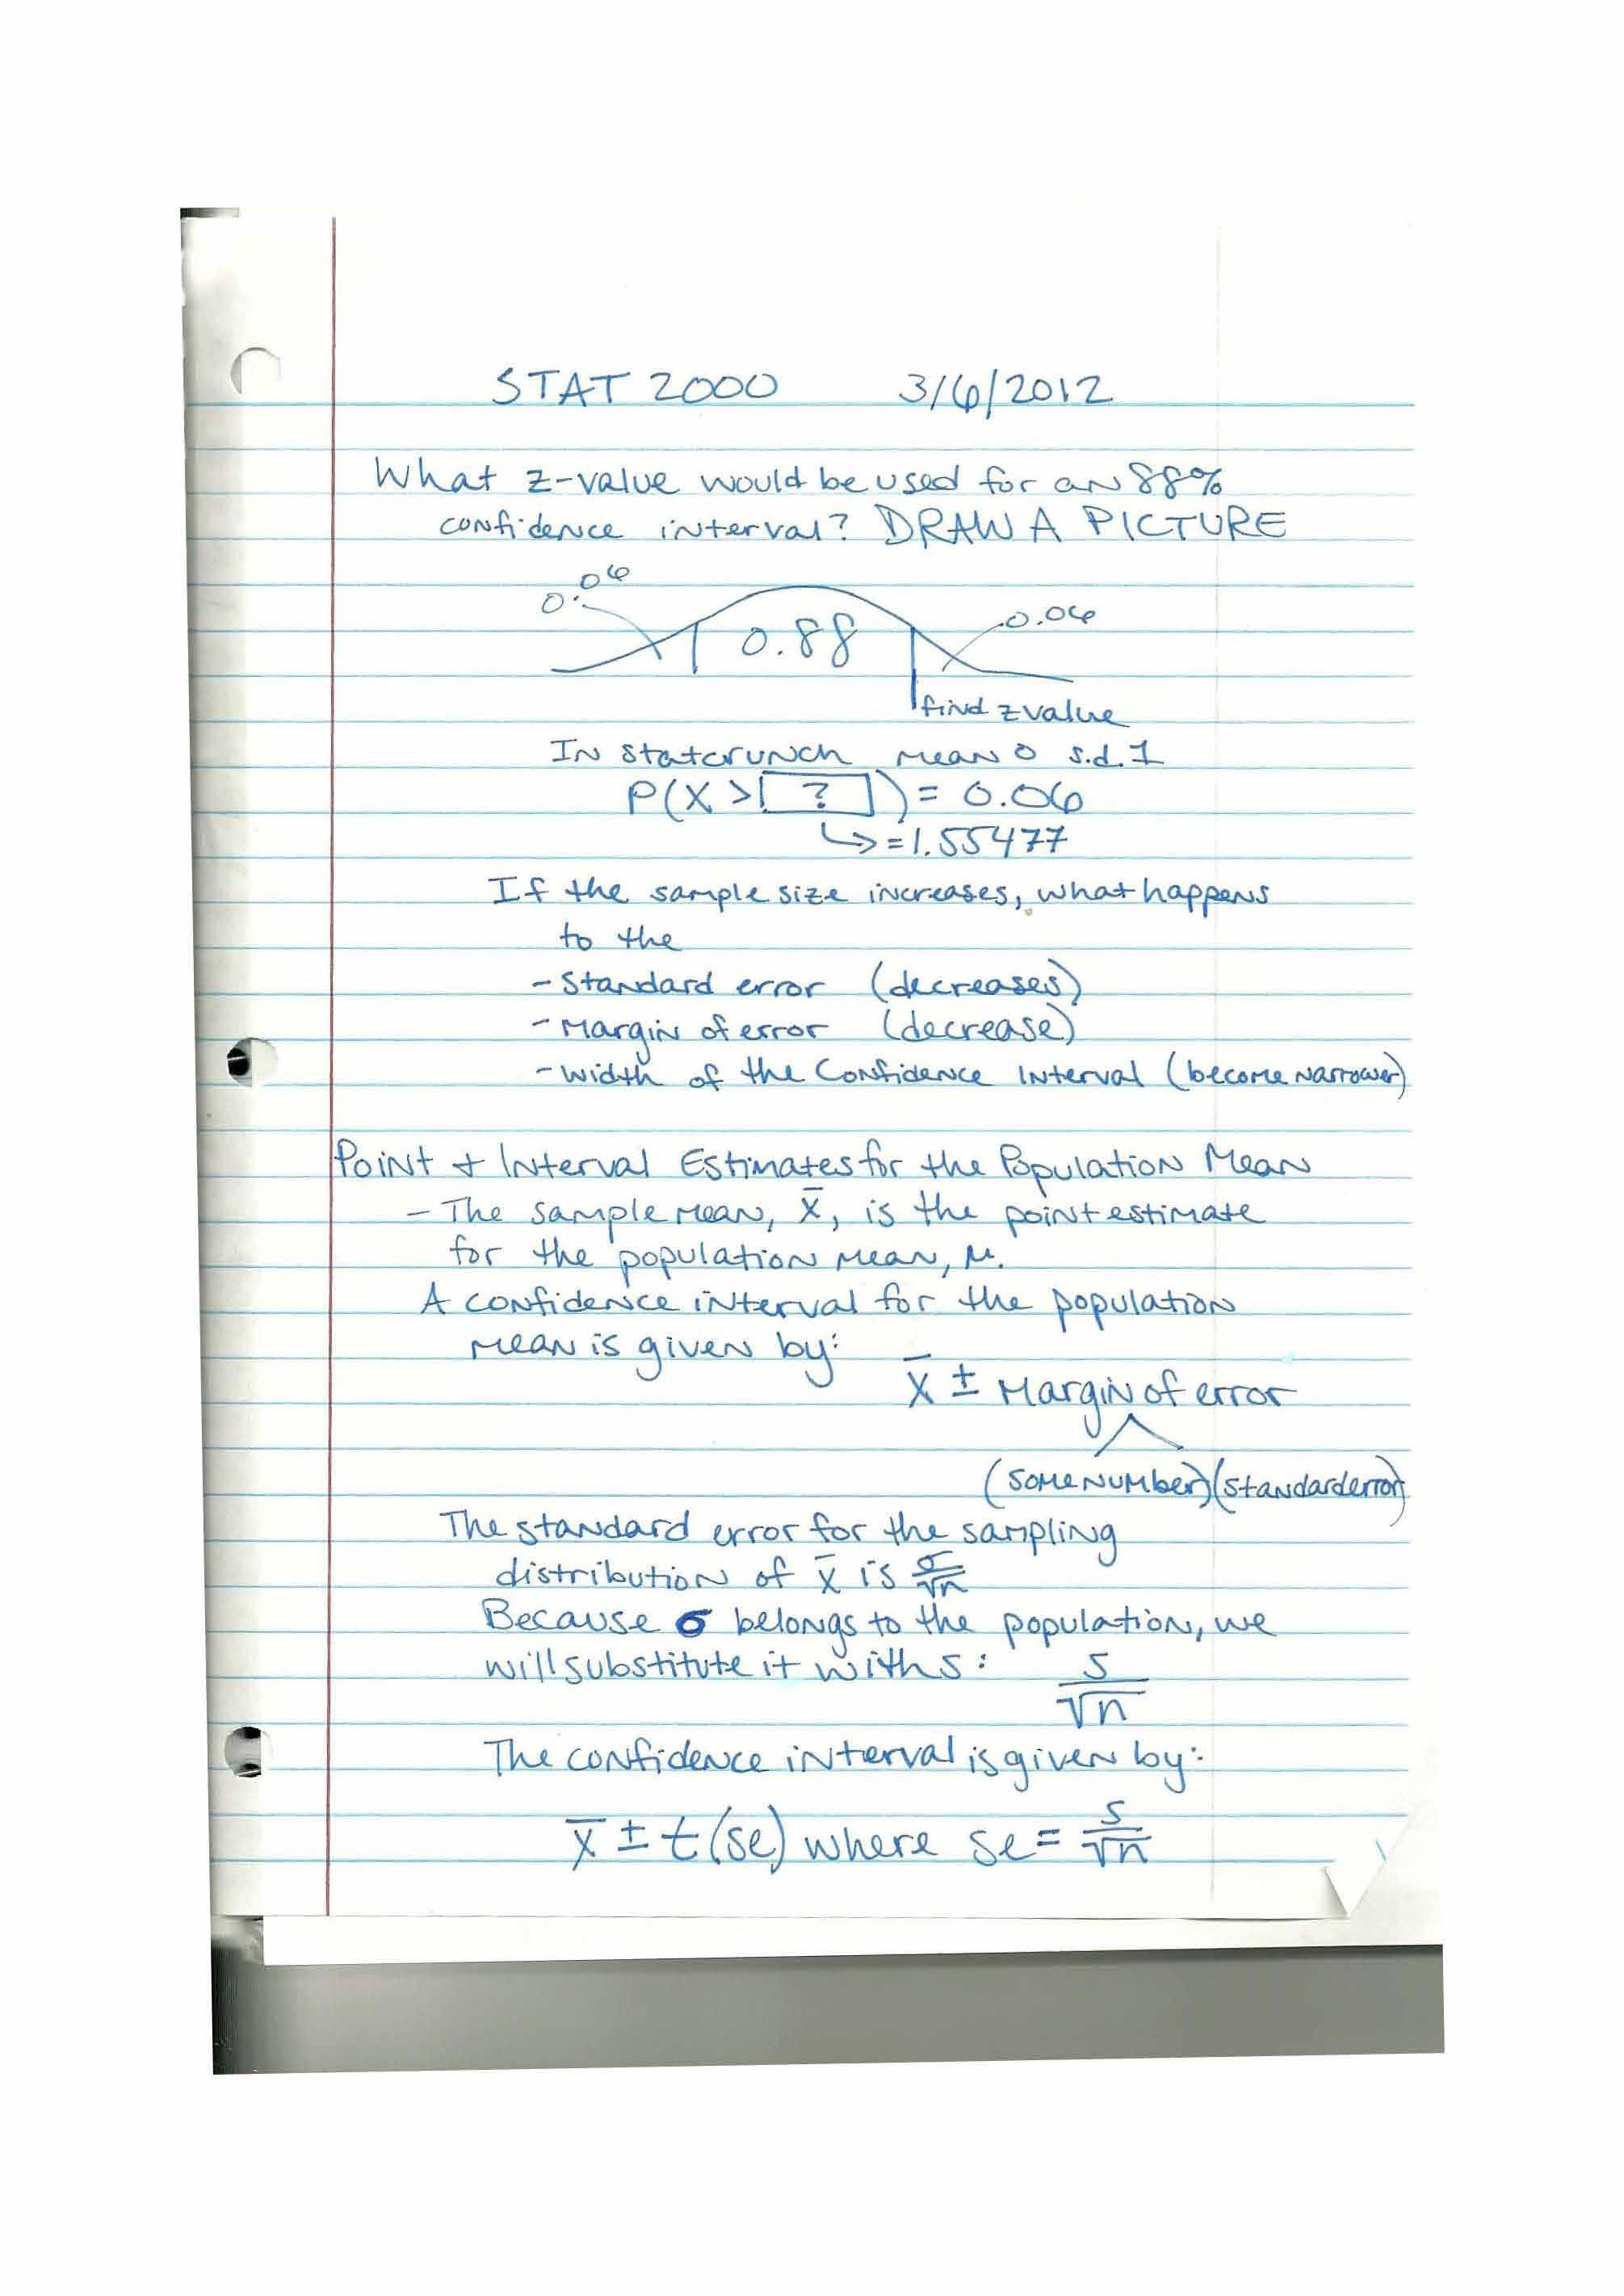 STAT 2000 3/6/2012
What z-value would be used for an 88%
confidence interval? DRAW A PICTURE
0.06
0.88
0.06
find z value
In statcrunch mean 0 s.d. 1
P(X > [ ? ]) = 0.06
↳ = 1.55477
If the sample size increases, what happens
to the
- Standard error (decreases)
- Margin of error (decrease)
- width of the Confidence Interval (become narrower)
Point + Interval Estimates for the Population Mean
- The sample mean, x̄, is the point estimate
for the population mean, μ.
A confidence interval for the population
mean is given by:
x̄ ± Margin of error
(some number)(standard error)
The standard error for the sampling
distribution of x̄ is σ/√n
Because σ belongs to the population, we
will substitute it with s: s/√n
The confidence interval is given by:
x̄ ± t(se) where se = s/√n